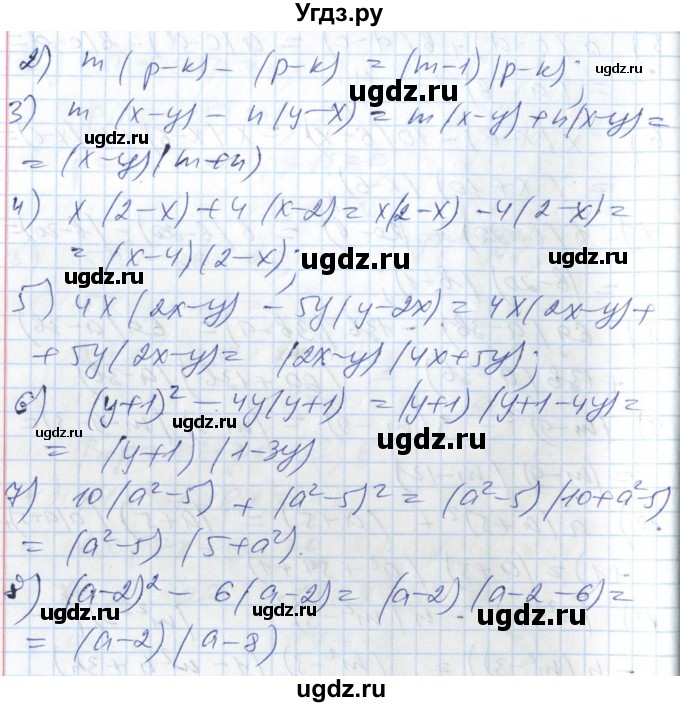 Угдз.ру
2) m(p-k) - (p-k) = (m-1)(p-k);
ugdz.ru
3) m(x-y) - n(y-x) = m(x-y)+n(x-y)=
ugdz.ru ugdz.ru
= (x-y)(m+n)
4) x(2-x)+4(x-2)=x(2-x) -4(2-x)=
= (x-4)(2-x);
ugdz.ru ugdz.ru
5) 4x(2x-y) - 5y(y-2x)= 4x(2x-y)+
ugdz.ru
+ 5y(2x-y)= (2x-y)(4x+5y);
6) (y+1)² - 4y(y+1) = (y+1)(y+1-4y)=
ugdz.ru ugdz.ru
= (y+1)(1-3y)
7) 10(a²-5) + (a²-5)² = (a²-5)(10+a²-5)
ugdz.ru ugdz.ru
= (a²-5)(5+a²).
8) (a-2)² - 6(a-2)= (a-2)(a-2-6)=
ugdz.ru ugdz.ru ugdz.ru
= (a-2)(a-8)
ugdz.ru